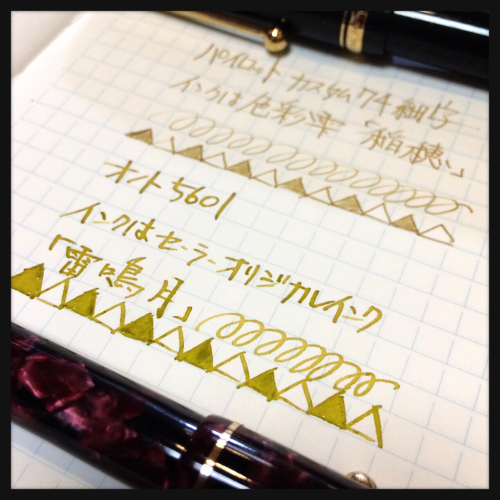 パイロット カスタム74 細字
インクは色彩雫「稲穂」
オノト5601
インクはセーラーオリジナルインク
「雷鳴月」